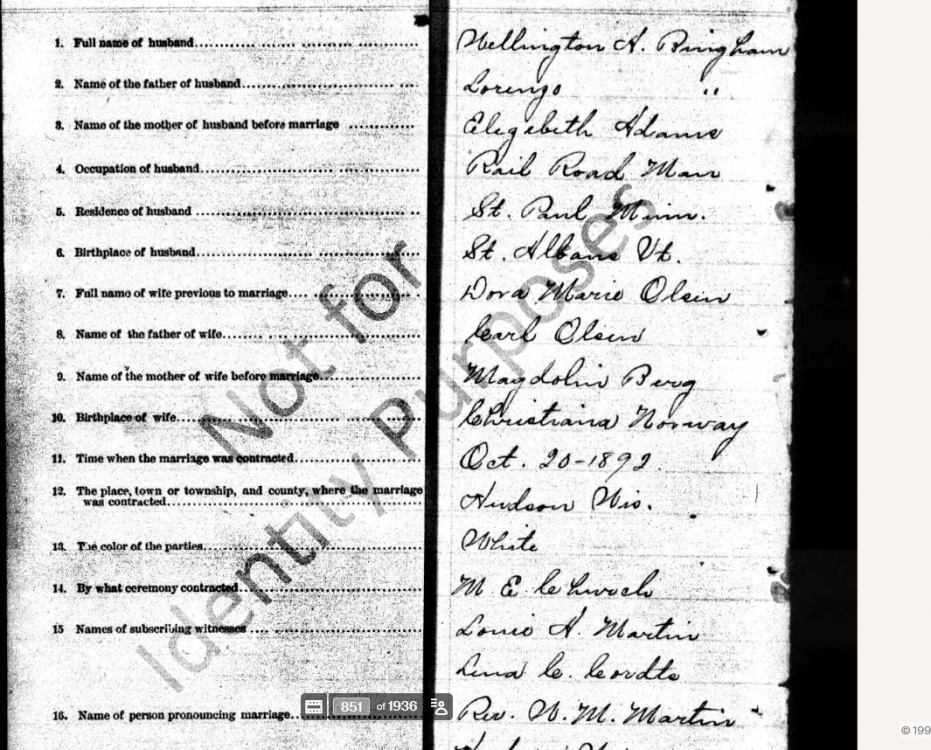 1. Full name of husband Wellington A. Bingham
2. Name of the father of husband Lorenzo "
3. Name of the mother of husband before marriage Elezibeth Adams
4. Occupation of husband Rail Road Man
5. Residence of husband St. Paul Minn.
6. Birthplace of husband St. Albans Vt.
7. Full name of wife previous to marriage Dora Marie Olsen
8. Name of the father of wife Carl Olsen
9. Name of the mother of wife before marriage Magdolin Berg
10. Birthplace of wife Christiana Norway
11. Time when the marriage was contracted Oct. 20-1892.
12. The place, town or township, and county, where the marriage
was contracted Hudson Wis.
13. The color of the parties White
14. By what ceremony contracted M. E. Church
15 Names of subscribing witnesses Louie A. Martin
Lena C. Cordts
16. Name of person pronouncing marriage Rev. W. M. Martin
Not for
Identity Purposes
851 of 1936
© 199